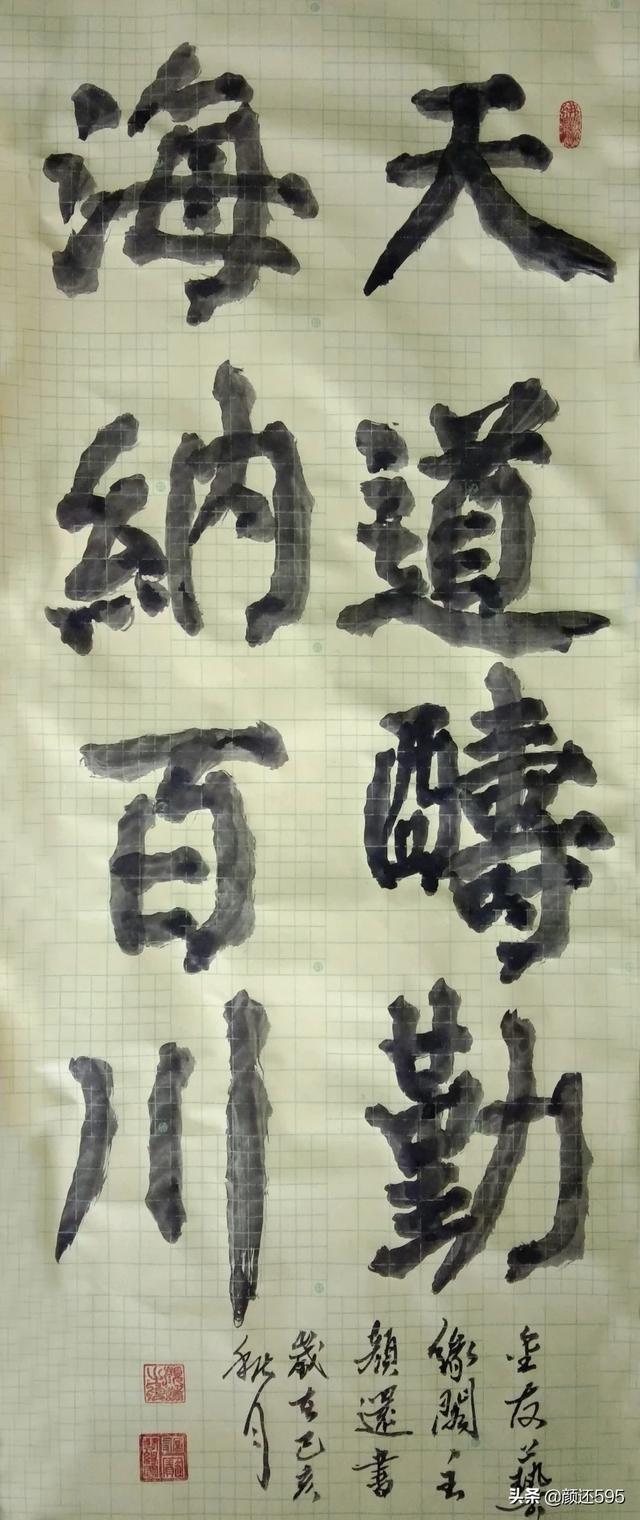 天道醻勤
海納百川
金友藝
缘閣主
顏還書
歲在己亥
秋月
头条 @颜还595